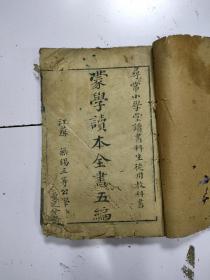 尋常小學堂讀書科生徒用教科書
蒙學讀本全書五編
江蘇 無錫三等公學